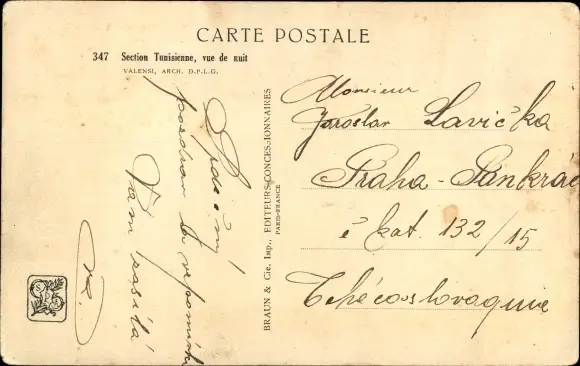 CARTE POSTALE
347 Section Tunisienne, vue de nuit
VALENSI, ARCH. D.P.L.G.
Srdečný
pozdrav a vzpomínku
Vám zasílá
BRAUN & Cie, Imp., EDITEURS-CONCESSIONNAIRES
PARIS-FRANCE
Monsieur
Jaroslav Lavička
Praha - Pankrác
č kat. 132/15
Tchécoslovaquie